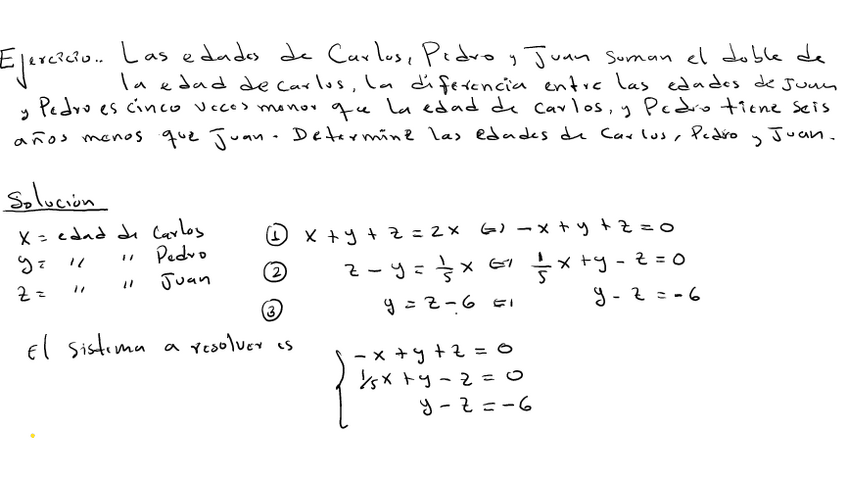 Ejercicio.. Las edades de Carlos, Pedro y Juan suman el doble de
la edad de Carlos, la diferencia entre las edades de Juan
y Pedro es cinco veces menor que la edad de Carlos, y Pedro tiene seis
años menos que Juan. Determine las edades de Carlos, Pedro y Juan.
Solución
x = edad de Carlos
y = " " Pedro
z = " " Juan
① x + y + z = 2x ⇔ -x + y + z = 0
② z - y = 1/5 x ⇔ 1/5 x + y - z = 0
③ y = z - 6 ⇔ y - z = -6
El sistema a resolver es
-x + y + z = 0
1/5 x + y - z = 0
y - z = -6